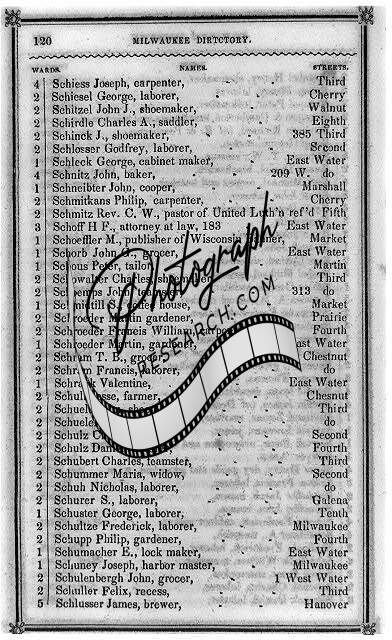 120 MILWAUKEE DIRECTORY.
WARDS. NAMES. STREETS.
4 Schiess Joseph, carpenter, Third
2 Schiesel George, laborer, Cherry
2 Schitzel John J., shoemaker, Walnut
2 Schirdle Charles A., saddler, Eighth
2 Schinck J., shoemaker, 385 Third
2 Schlosser Godfrey, laborer, Second
1 Schleck George, cabinet maker, East Water
4 Schnitz John, baker, 209 W. do
1 Schneibter John, cooper, Marshall
2 Schmitkans Philip, carpenter, Cherry
2 Schmitz Rev. C. W., pastor of United Luth'n ref'd Fifth
3 Schoff H F., attorney at law, 183 East Water
1 Schoeffler M., publisher of Wisconsin Market
1 Schorb John G., grocer, East Water
1 Schous Peter, tailor, Martin
2 Schowalter Charles, Third
2 Schemps John, 313 do
1 Schmidtill S., coffee house, Market
2 Schroeder Martin gardener, Prairie
2 Schroeder Francis William, Fourth
1 Schroeder Martin, gardener, East Water
2 Schram T. B., grocer, Chestnut
2 Schram Francis, laborer, do
1 Schrank Valentine, East Water
2 farmer, Chesnut
2 Third
2 do
2 Schulz Second
2 Schulz Fourth
2 Schubert Charles, teamster, Third
2 Schummer Maria, widow, Second
2 Schuh Nicholas, laborer, do
2 Schurer S., laborer, Galena
1 Schuster George, laborer, Tenth
2 Schultze Frederick, laborer, Milwaukee
2 Schupp Philip, gardener, Fourth
1 Schumacher E., lock maker, East Water
1 Scluney Joseph, harbor master, Milwaukee
2 Schulenbergh John, grocer, 1 West Water
2 Schuller Felix, recess, Third
5 Schlusser James, brewer, Hanover
Photograph
RESEARCH.COM